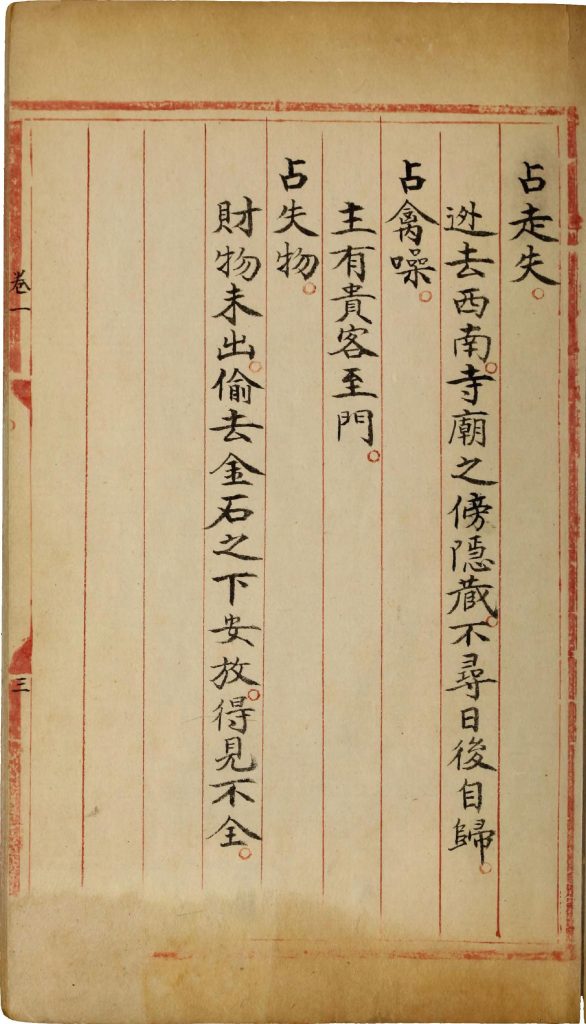 占走失。
迯去西南。寺廟之傍隱藏。不尋日後自歸。
占禽噪。
主有貴客至門。
占失物。
財物未出。偷去金石之下安放。得見不全。
卷一
三